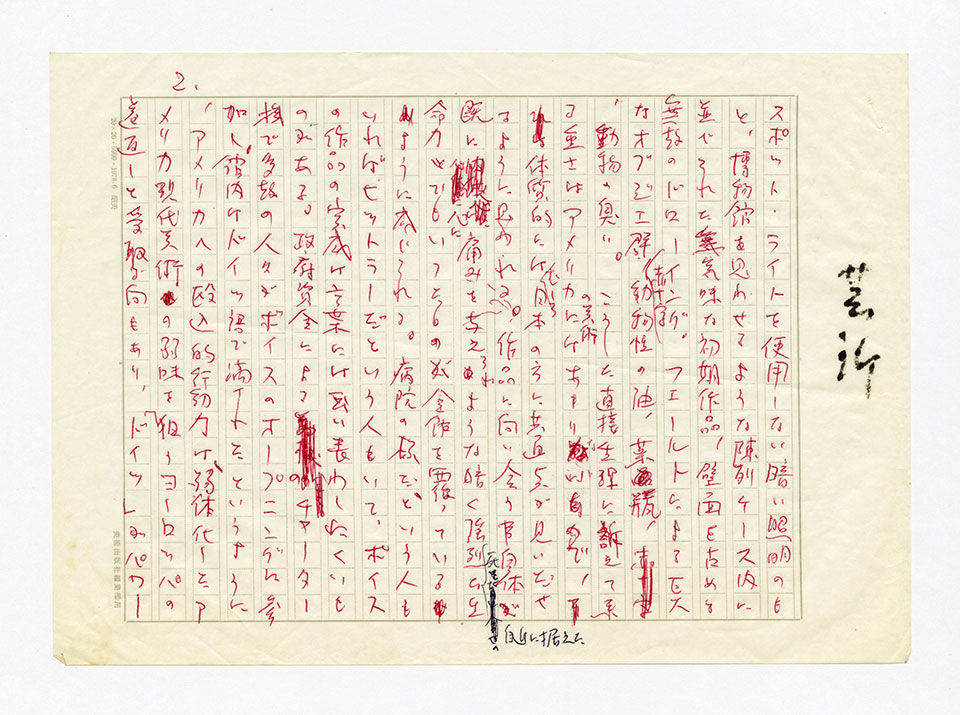 2.
スポット・ライトを使用しない暗い照明のも
と、博物館を思わせるような陳列ケース内に
並べられた無気味な初期作品、壁面を占める
無数のドローイング。フェルトによる巨大
なオブジェ群、動物性の油、薬瓶、
、動物の臭い。こうした直接生理に訴えて来
る重さはアメリカの美術にはあまりないもので、
体質的には日本の方に共通点が見いだせ
るように思われる。作品に向い会う自体が
既に痛みを与えられるような暗く強烈な生
命力とでもいったものが全体を覆っている
ように感じられる。病院の様だという人も
いればヒットラーだという人もいて、ボイス
の作品の実感は言葉には言い表わしにくいも
のがある。政府資金によるチャーター
機で多数の人々がボイスのオープニングに参
加し、館内はドイツ語で満ちたというように
、アメリカへの殴込的行動力は、弱体化したア
メリカ現代美術の弱味を狙うヨーロッパの
と受取る向もあり、「ドイツ パワー
身近に据えた
20×20
美術出版社編集部用